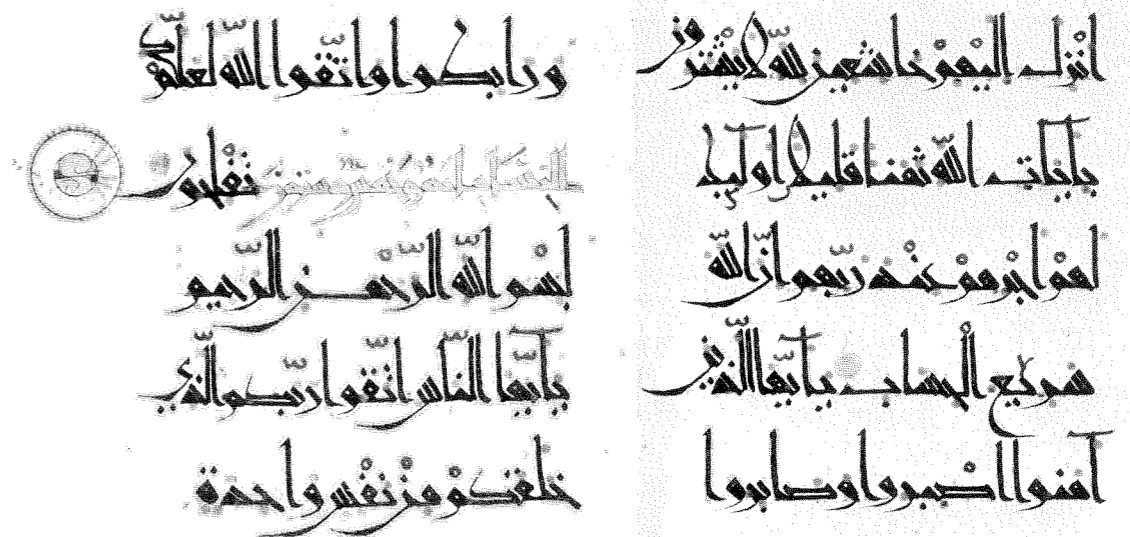 اُنْزِل اليْهمْ خاشعين للّه لا يشْترون
بآيات اللّه ثمنا قليلا اوليك
لهمْ اجْرهمْ عنْد ربّهم انّ اللّه
سريع الْحساب يآ ايّها الّذين
آمنوا اصْبروا وصابروا
ورابطوا واتّقوا اللّه لعلّكمْ
تفْلحون
بسْم اللّه الرّحْمن الرّحيم
يآ ايّها النّاس اتّقوا ربّكم الّذي
خلقكمْ منْ نفْس واحدة